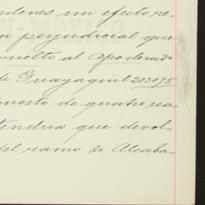 ndenes un efecto re-
n perjudicial que
vuelto al Apoderado
de Guayaquil 203075
puesto de quatro rea-
tendria que devol-
del ramo de Alcaba-